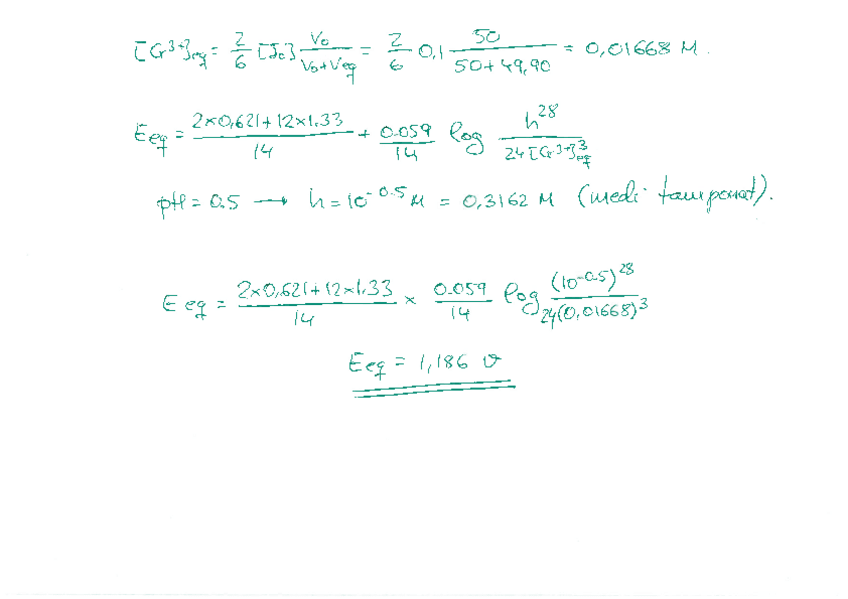 [Cr³⁺]eq = 2/6 [I₀] V₀/(V₀+Veq) = 2/6 0,1 50/(50+49,90) = 0,01668 M.
Eeq = (2×0,621+12×1.33)/14 + 0.059/14 log h²⁸/(24[Cr³⁺]³eq)
pH = 0.5 → h = 10⁻⁰·⁵ M = 0,3162 M (medi tamponat).
Eeq = (2×0,621+12×1.33)/14 × 0.059/14 log (10⁻⁰·⁵)²⁸/(24(0,01668)³)
Eeq = 1,186 V